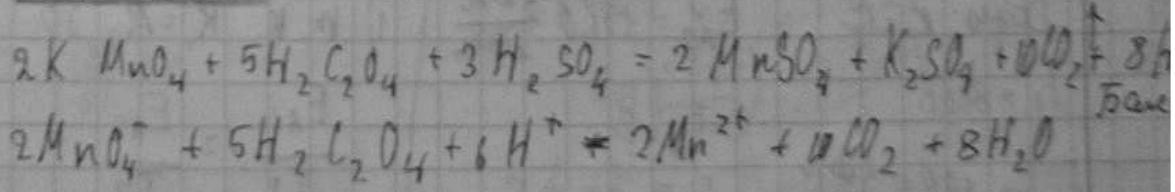 2K MnO₄ + 5H₂C₂O₄ + 3H₂SO₄ = 2MnSO₄ + K₂SO₄ + 10CO₂↑ + 8H
2MnO₄⁻ + 5H₂C₂O₄ + 6H⁺ = 2Mn²⁺ + 10CO₂ + 8H₂O